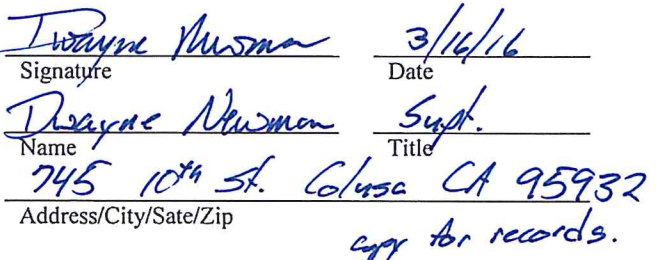 Dwayne Newman 3/16/16
Signature Date
Dwayne Newman Supt.
Name Title
745 10th St. Colusa CA 95932
Address/City/Sate/Zip
copy for records.